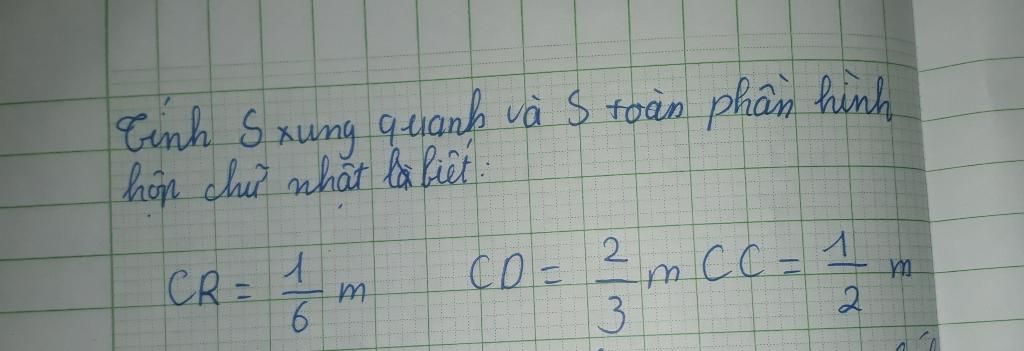 Tính S xung quanh và S toàn phần hình
hộp chữ nhật biết:
CR = 1/6 m CD = 2/3 m CC = 1/2 m